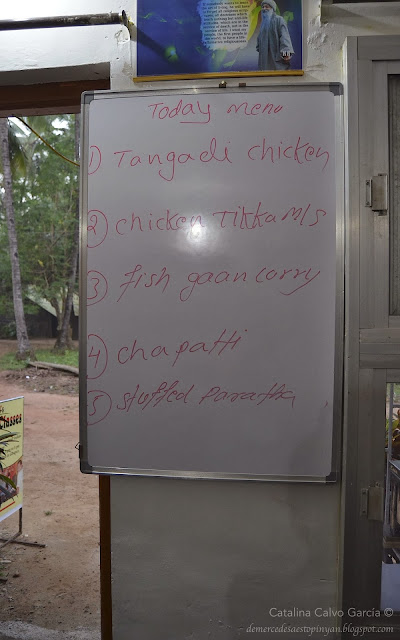 Today Menu
1) Tangadi chicken
2) chicken Tikka M/s
3) fish gaan curry
4) chapatti
5) stuffed Paratha
Classes
Catalina Calvo García ©
demercedesaestopinyan.blogspot.com